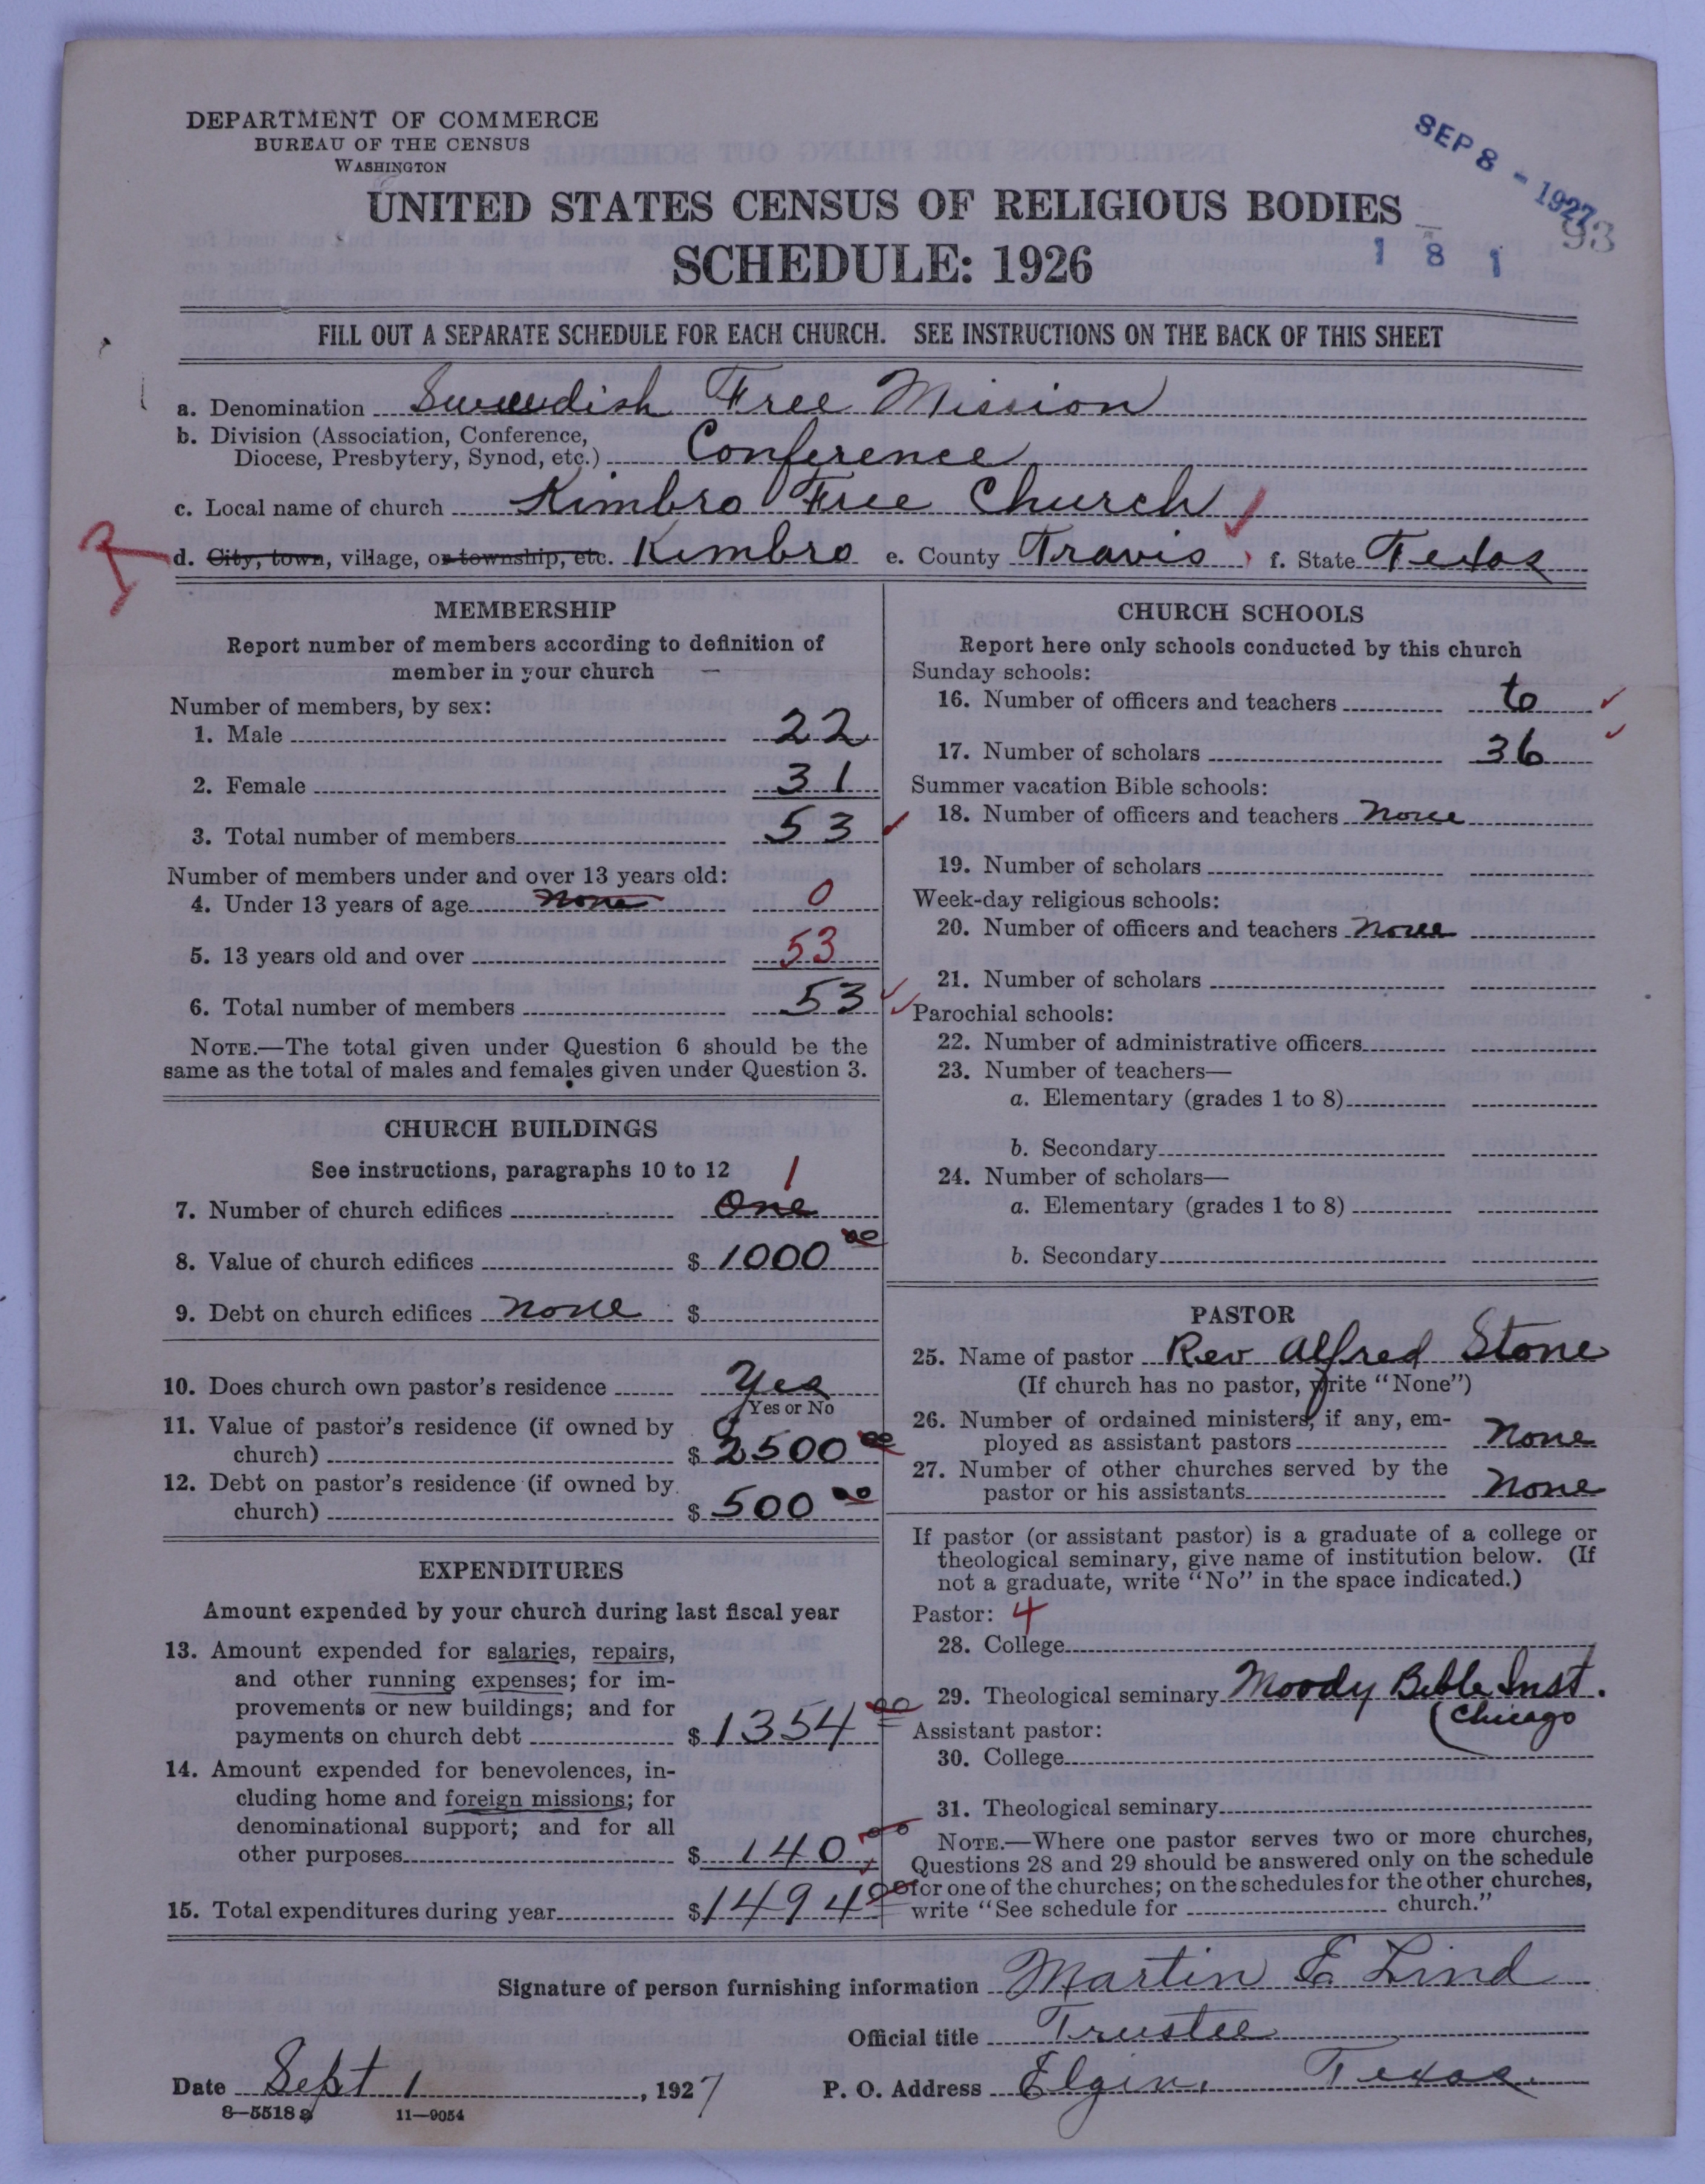 DEPARTMENT OF COMMERCE
BUREAU OF THE CENSUS
WASHINGTON
SEP 8 - 1927
93
UNITED STATES CENSUS OF RELIGIOUS BODIES
SCHEDULE: 1926
1 8 1
FILL OUT A SEPARATE SCHEDULE FOR EACH CHURCH. SEE INSTRUCTIONS ON THE BACK OF THIS SHEET
a. Denomination Swedish Free Mission
b. Division (Association, Conference,
Diocese, Presbytery, Synod, etc.) Conference
c. Local name of church Kimbro Free Church
R
d. City, town, village, or township, etc. Kimbro e. County Travis f. State Texas
MEMBERSHIP
Report number of members according to definition of
member in your church
Number of members, by sex:
1. Male 22
2. Female 31
3. Total number of members 53
Number of members under and over 13 years old:
4. Under 13 years of age none 0
5. 13 years old and over 53
6. Total number of members 53
NOTE.—The total given under Question 6 should be the
same as the total of males and females given under Question 3.
CHURCH BUILDINGS
See instructions, paragraphs 10 to 12
1
7. Number of church edifices One
8. Value of church edifices $ 1000 00
9. Debt on church edifices none $
10. Does church own pastor's residence Yes
Yes or No
11. Value of pastor's residence (if owned by
church) $ 2500 00
12. Debt on pastor's residence (if owned by
church) $ 500 00
EXPENDITURES
Amount expended by your church during last fiscal year
13. Amount expended for salaries, repairs,
and other running expenses; for im-
provements or new buildings; and for
payments on church debt $ 1354 00
14. Amount expended for benevolences, in-
cluding home and foreign missions; for
denominational support; and for all
other purposes $ 140 00
15. Total expenditures during year $ 1494 00
CHURCH SCHOOLS
Report here only schools conducted by this church
Sunday schools:
16. Number of officers and teachers 6
17. Number of scholars 36
Summer vacation Bible schools:
18. Number of officers and teachers none
19. Number of scholars
Week-day religious schools:
20. Number of officers and teachers none
21. Number of scholars
Parochial schools:
22. Number of administrative officers
23. Number of teachers—
a. Elementary (grades 1 to 8)
b. Secondary
24. Number of scholars—
a. Elementary (grades 1 to 8)
b. Secondary
PASTOR
25. Name of pastor Rev Alfred Stone
(If church has no pastor, write "None")
26. Number of ordained ministers, if any, em-
ployed as assistant pastors none
27. Number of other churches served by the
pastor or his assistants none
If pastor (or assistant pastor) is a graduate of a college or
theological seminary, give name of institution below. (If
not a graduate, write "No" in the space indicated.)
Pastor: 4
28. College
29. Theological seminary Moody Bible Inst.
(Chicago
Assistant pastor:
30. College
31. Theological seminary
NOTE.—Where one pastor serves two or more churches,
Questions 28 and 29 should be answered only on the schedule
for one of the churches; on the schedules for the other churches,
write "See schedule for church."
Signature of person furnishing information Martin E Lind
Official title Trustee
Date Sept 1, 1927 P. O. Address Elgin, Texas
8—5518 a 11—9054